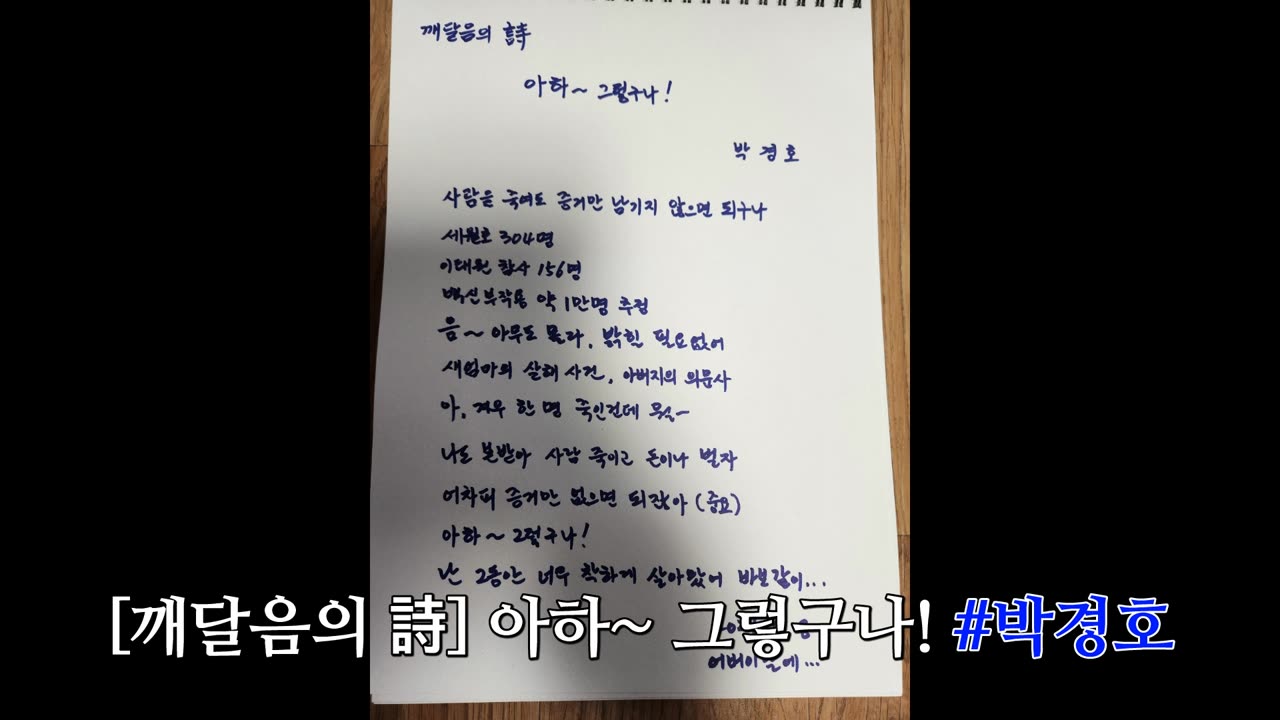 깨달음의 詩
아하~ 그렇구나!
박 경 호
사람을 죽여도 증거만 남기지 않으면 되구나
세월호 304명
이태원 참사 156명
백신부작용 약 1만명 추정
음~ 아무도 몰라, 밝힐 필요없어
새엄마의 살해 사건, 아버지의 의문사
아, 겨우 한 명 죽인건데 뭐~
나도 본받아 사람 죽이고 돈이나 벌자
어차피 증거만 없으면 되잖아 (중요)
아하~ 그렇구나!
난 그동안 너무 착하게 살아왔어 바보같이...
어버이날에...
[깨달음의 詩] 아하~ 그렇구나! #박경호